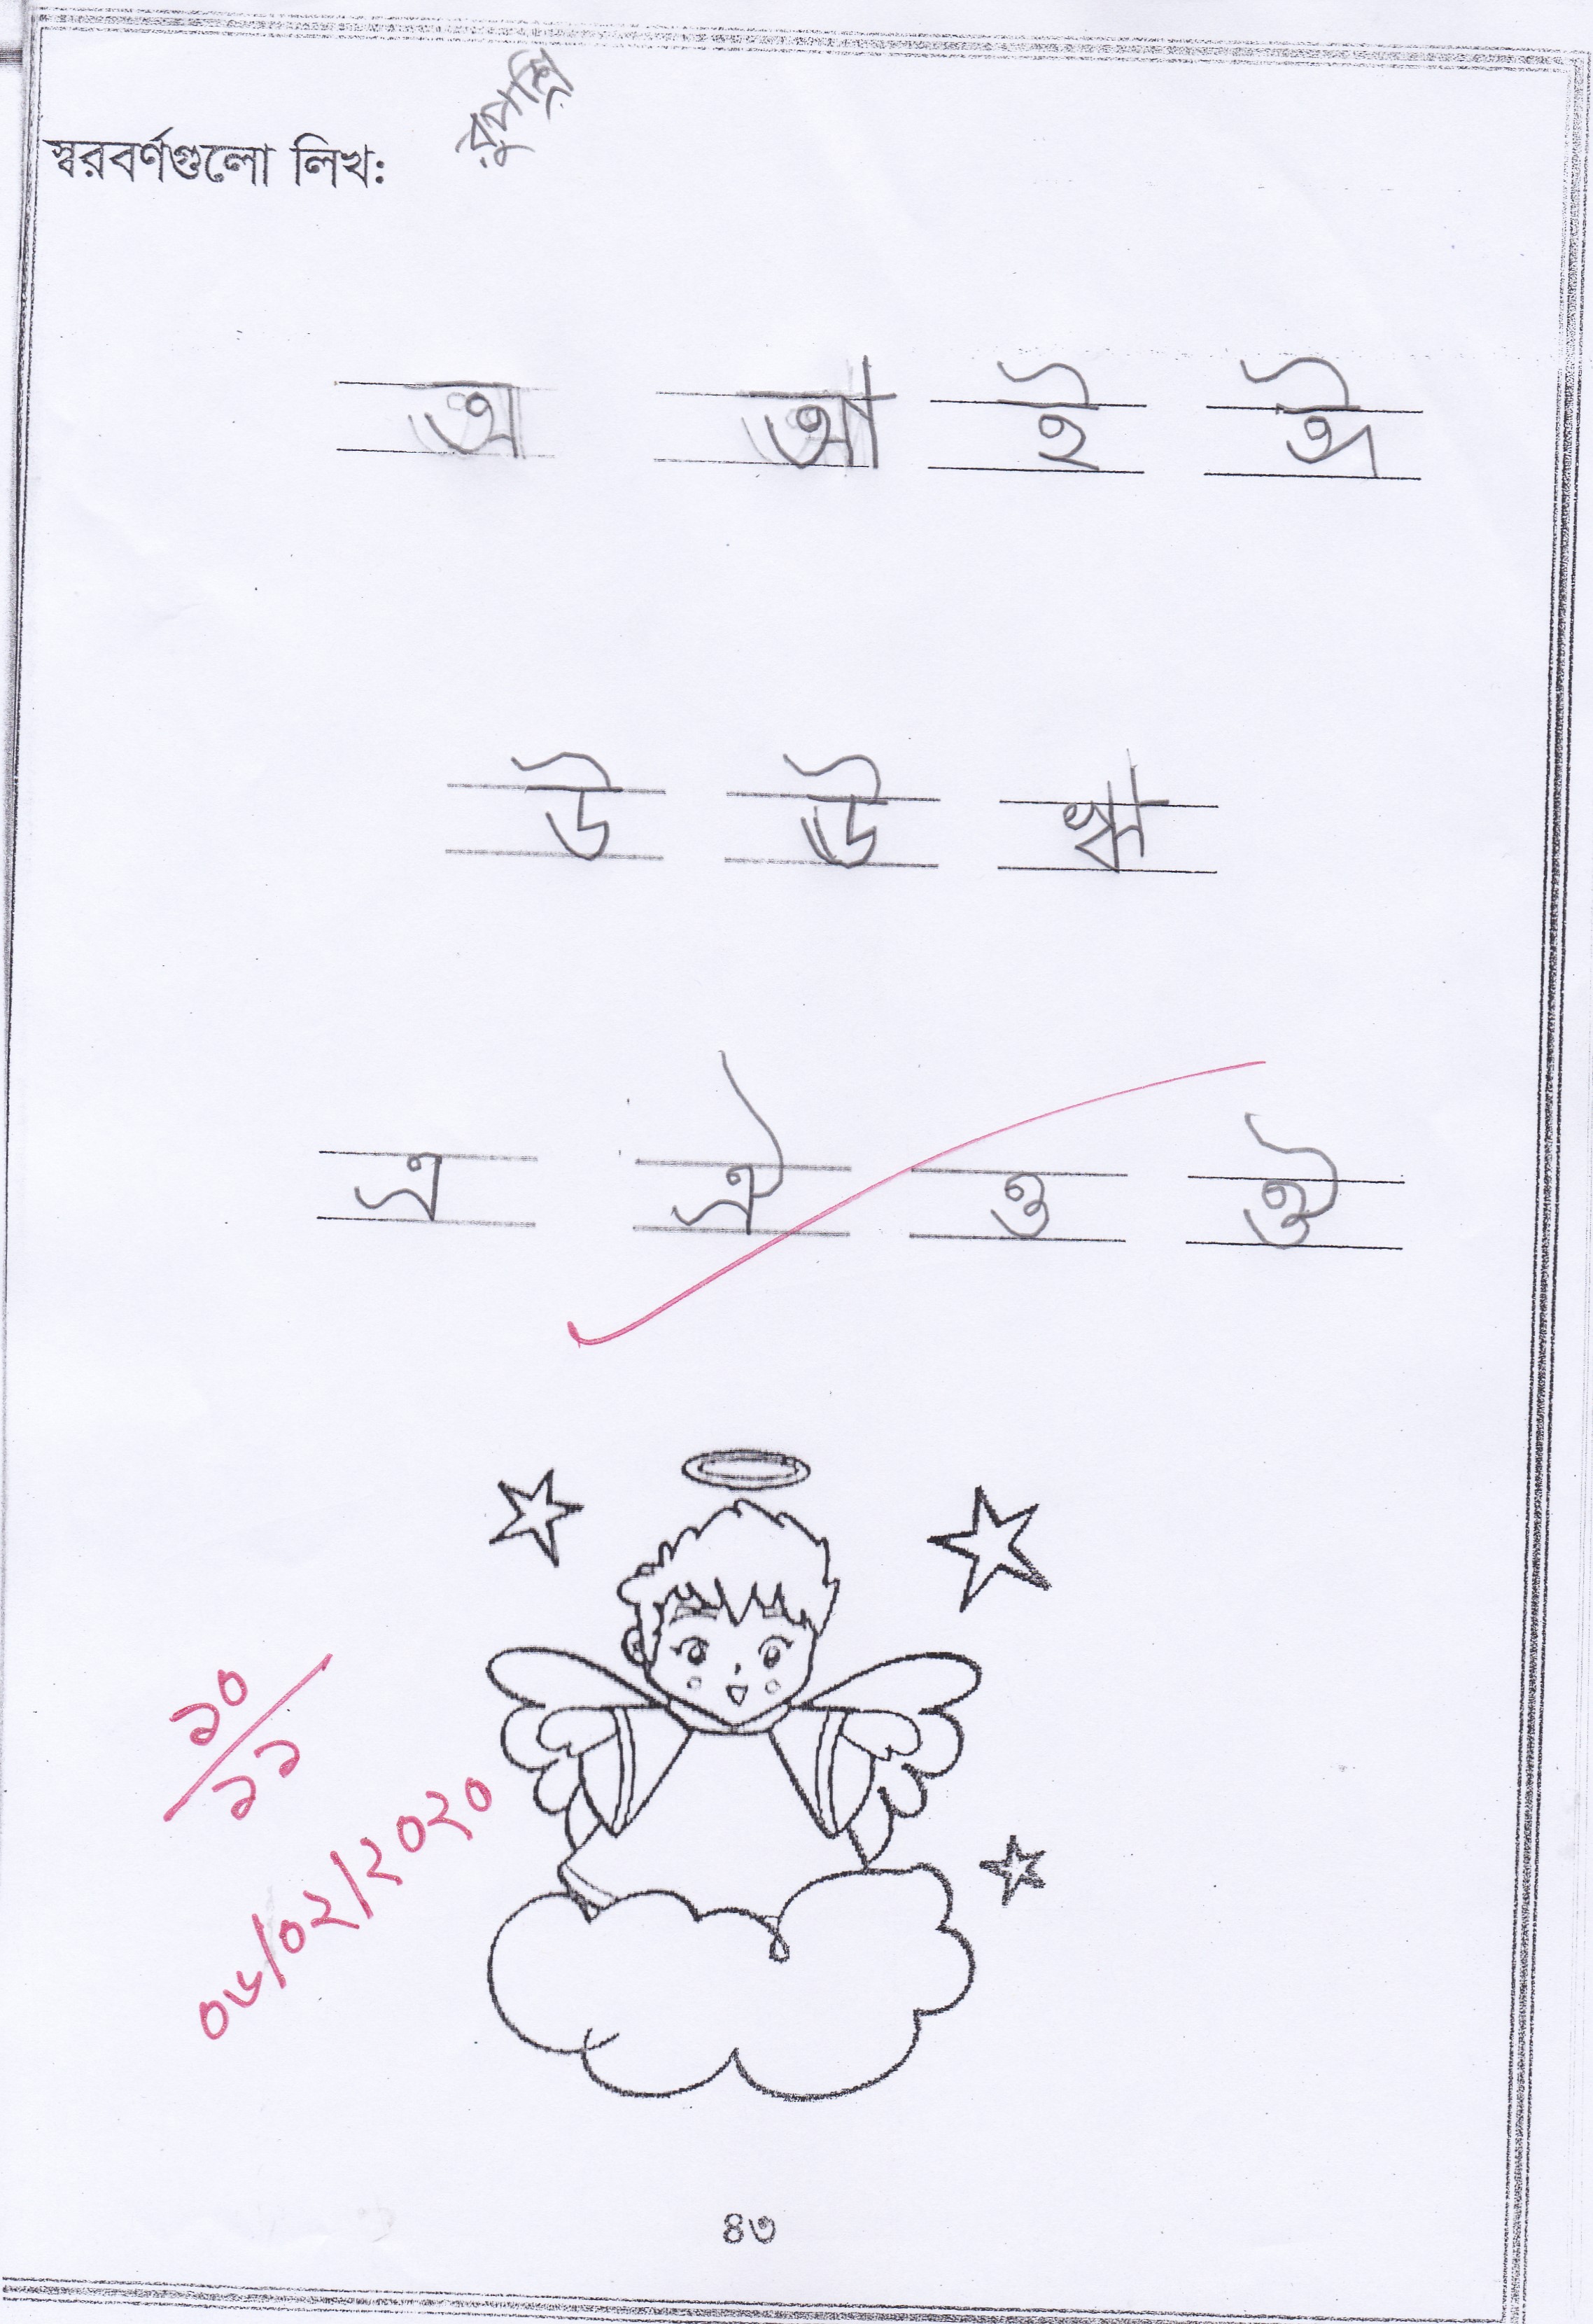 স্বরবর্ণগুলো লিখ:
অ আ ই ঈ
উ ঊ ঋ
এ ঐ ও ঔ
১০/১১
০৬/০২/২০২০
৪৩